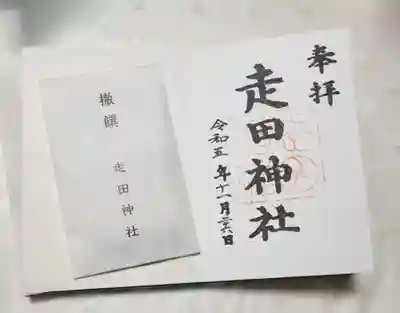 奉拝
走田神社
令和五年十一月二十六日
撤饌
走田神社